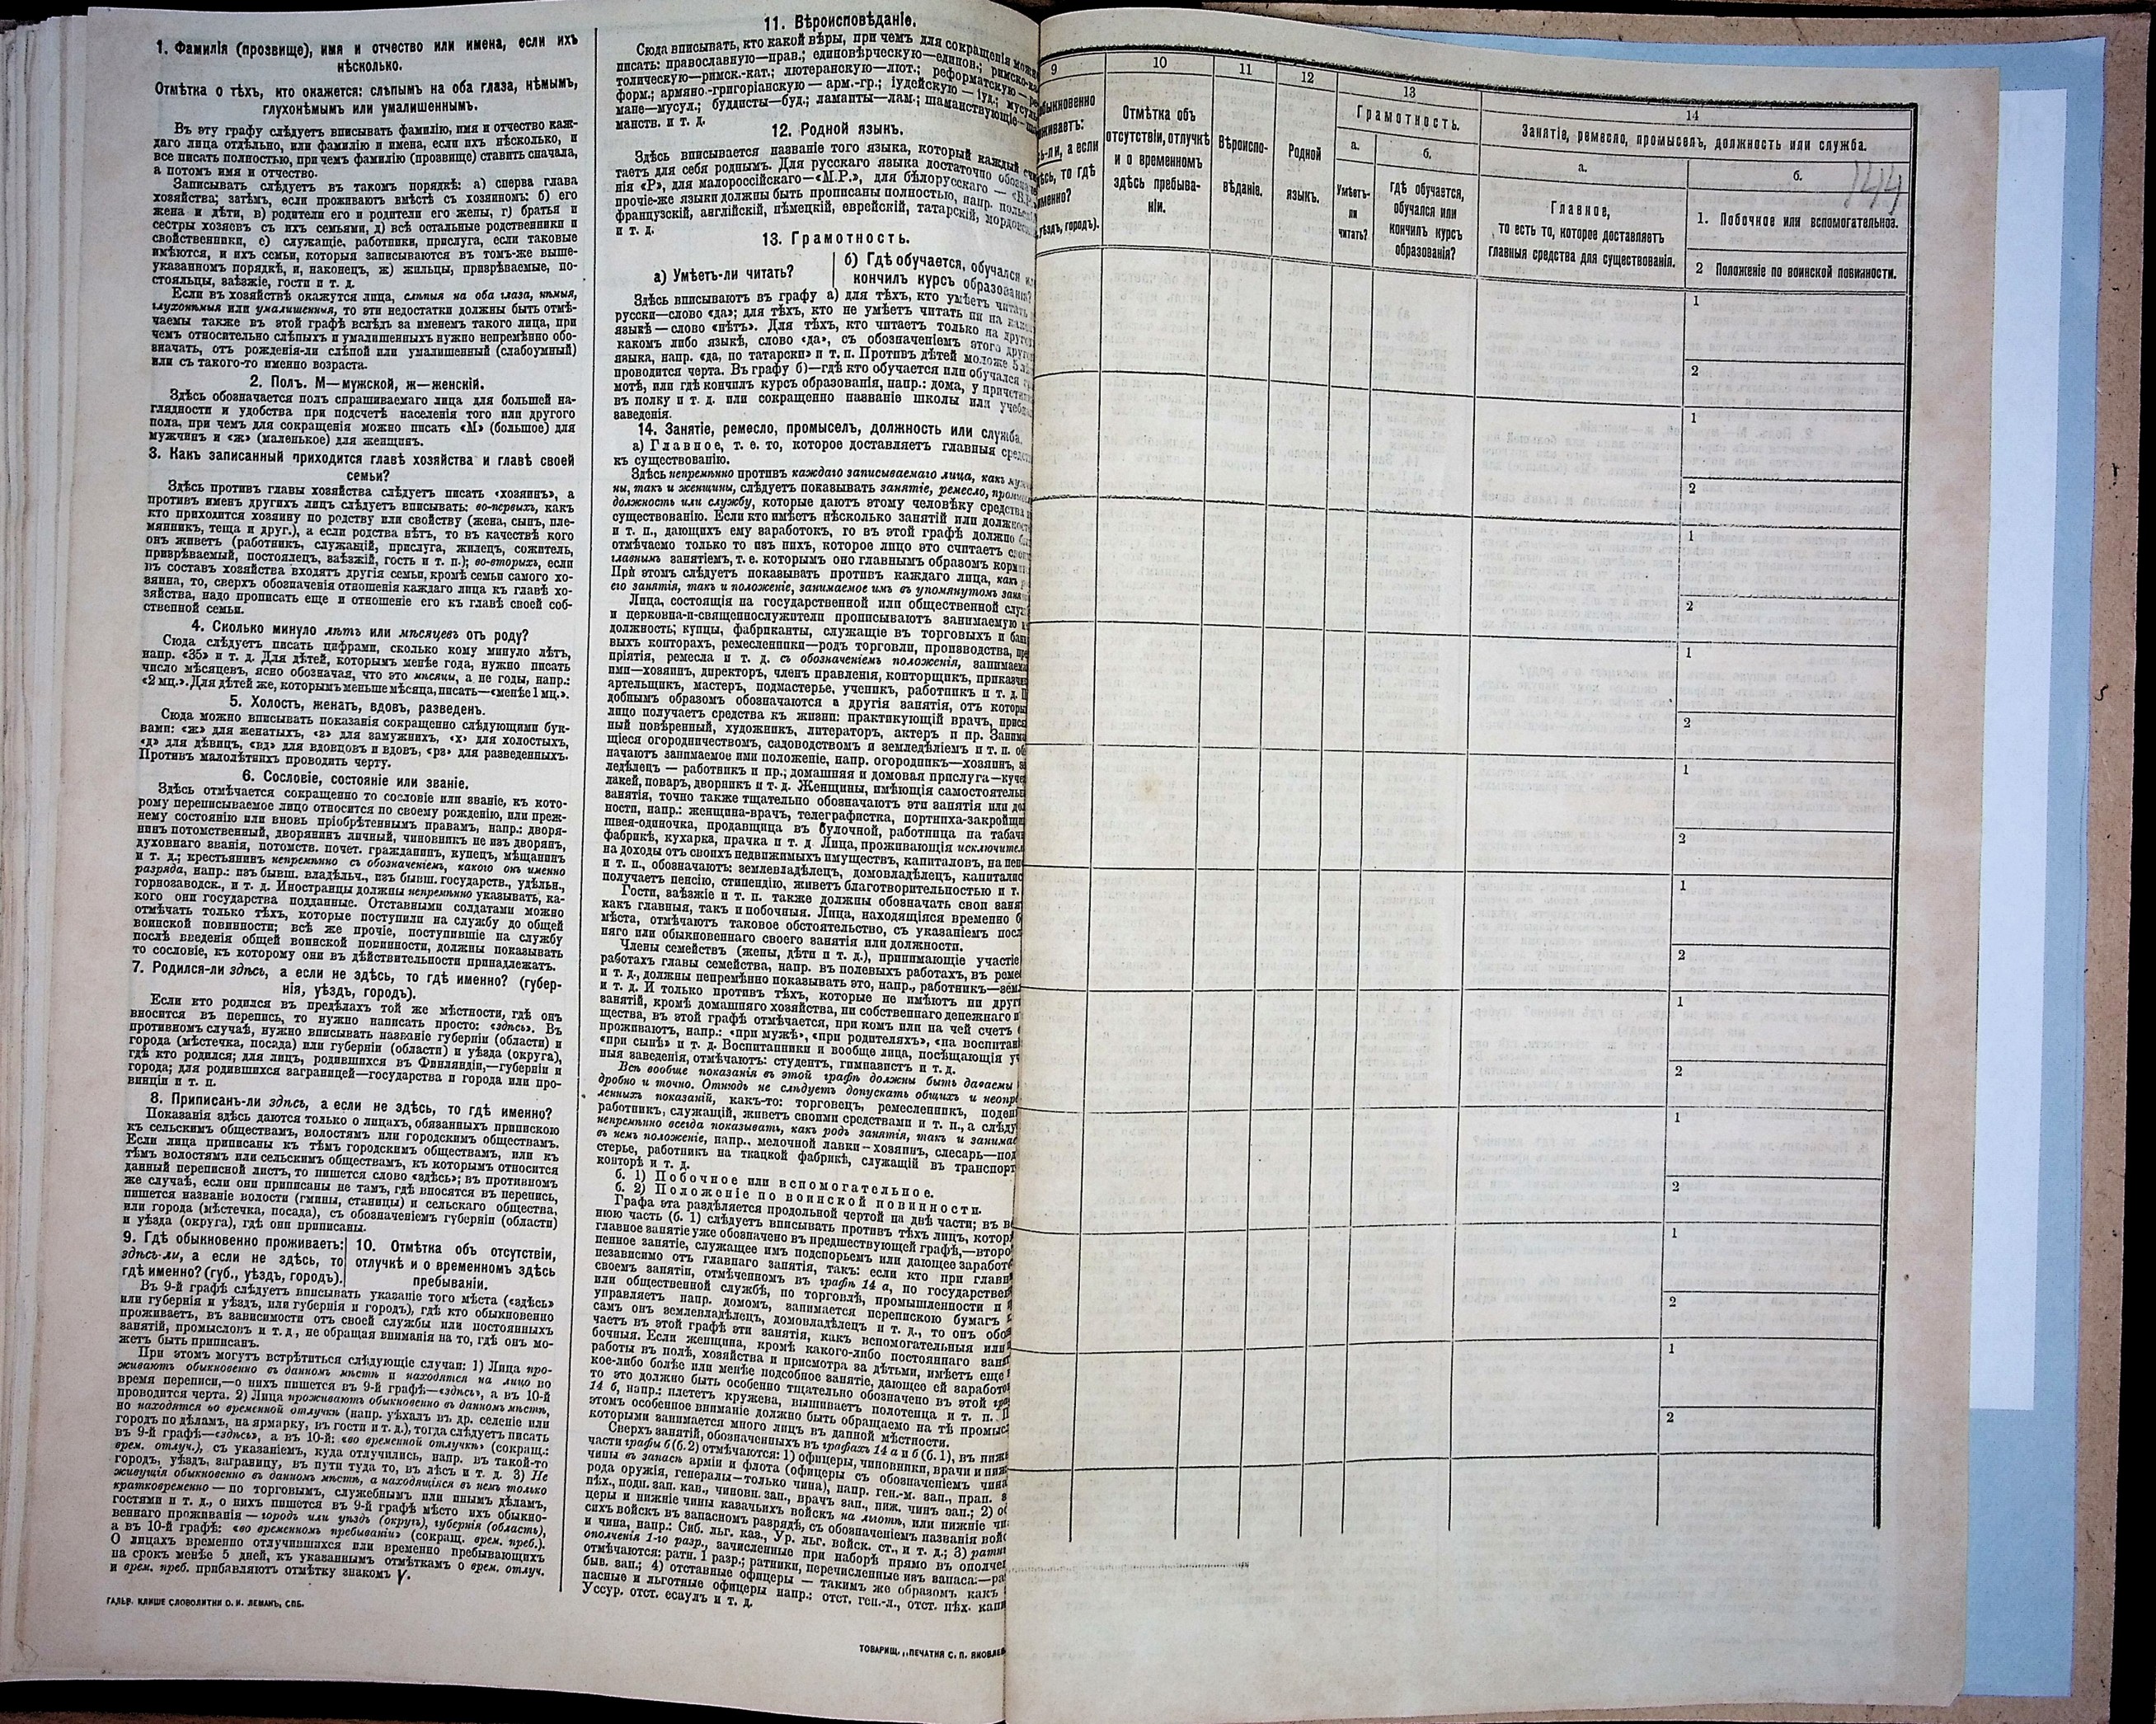 1. Фамилія (прозвище), имя и отчество или имена, если ихъ
нѣсколько.
Отмѣтка о тѣхъ, кто окажется: слѣпымъ на оба глаза, нѣмымъ,
глухонѣмымъ или умалишеннымъ.
Въ эту графу слѣдуетъ вписывать фамилію, имя и отчество каж-
даго лица отдѣльно, или фамилію и имена, если ихъ нѣсколько, и
все писать полностью, при чемъ фамилію (прозвище) ставить сначала,
а потомъ имя и отчество.
Записывать слѣдуетъ въ такомъ порядкѣ: а) сперва глава
хозяйства; затѣмъ, если проживаютъ вмѣстѣ съ хозяиномъ: б) его
жена и дѣти, в) родители его и родители его жены, г) братья и
сестры хозяевъ съ ихъ семьями, д) всѣ остальные родственники и
свойственники, е) служащіе, работники, прислуга, если таковые
имѣются, и ихъ семьи, которыя записываются въ томъ-же выше-
указанномъ порядкѣ, и, наконецъ, ж) жильцы, призрѣваемые, по-
стояльцы, заѣзжіе, гости и т. д.
Если въ хозяйствѣ окажутся лица, слѣпыя на оба глаза, нѣмыя,
глухонѣмыя или умалишенныя, то эти недостатки должны быть отмѣ-
чаемы также въ этой графѣ вслѣдъ за именемъ такого лица, при
чемъ относительно слѣпыхъ и умалишенныхъ нужно непремѣнно обо-
значать, отъ рожденія-ли слѣпой или умалишенный (слабоумный)
или съ такого-то именно возраста.
2. Полъ. М—мужской, ж—женскій.
Здѣсь обозначается полъ спрашиваемаго лица для большей на-
глядности и удобства при подсчетѣ населенія того или другого
пола, при чемъ для сокращенія можно писать «М» (большое) для
мужчинъ и «ж» (маленькое) для женщинъ.
3. Какъ записанный приходится главѣ хозяйства и главѣ своей
семьи?
Здѣсь противъ главы хозяйства слѣдуетъ писать «хозяинъ», а
противъ именъ другихъ лицъ слѣдуетъ вписывать: во-первыхъ, какъ
кто приходится хозяину по родству или свойству (жена, сынъ, пле-
мянникъ, теща и друг.), а если родства нѣтъ, то въ качествѣ кого
онъ живетъ (работникъ, служащій, прислуга, жилецъ, сожитель,
призрѣваемый, постоялецъ, заѣзжій, гость и т. п.); во-вторыхъ, если
въ составъ хозяйства входятъ другія семьи, кромѣ семьи самого хо-
зяина, то, сверхъ обозначенія отношенія каждаго лица къ главѣ хо-
зяйства, надо прописать еще и отношеніе его къ главѣ своей соб-
ственной семьи.
4. Сколько минуло лѣтъ или мѣсяцевъ отъ роду?
Сюда слѣдуетъ писать цифрами, сколько кому минуло лѣтъ,
напр. «35» и т. д. Для дѣтей, которымъ менѣе года, нужно писать
число мѣсяцевъ, ясно обозначая, что это мѣсяцы, а не годы, напр.:
«2 мц.». Для дѣтей же, которымъ меньше мѣсяца, писать—«менѣе 1 мц.».
5. Холостъ, женатъ, вдовъ, разведенъ.
Сюда можно вписывать показанія сокращенно слѣдующими бук-
вами: «ж» для женатыхъ, «з» для замужнихъ, «х» для холостыхъ,
«д» для дѣвицъ, «вд» для вдовцовъ и вдовъ, «рз» для разведенныхъ.
Противъ малолѣтнихъ проводить черту.
6. Сословіе, состояніе или званіе.
Здѣсь отмѣчается сокращенно то сословіе или званіе, къ кото-
рому переписываемое лицо относится по своему рожденію, или преж-
нему состоянію или вновь пріобрѣтеннымъ правамъ, напр.: дворя-
нинъ потомственный, дворянинъ личный, чиновникъ не изъ дворянъ,
духовнаго званія, потомств. почет. гражданинъ, купецъ, мѣщанинъ
и т. д.; крестьянинъ непремѣнно съ обозначеніемъ, какого онъ именно
разряда, напр.: изъ бывш. владѣльч., изъ бывш. государств., удѣльн.,
горнозаводск., и т. д. Иностранцы должны непремѣнно указывать, ка-
кого они государства подданные. Отставными солдатами можно
отмѣчать только тѣхъ, которые поступили на службу до общей
воинской повинности; всѣ же прочіе, поступившіе на службу
послѣ введенія общей воинской повинности, должны показывать
то сословіе, къ которому они въ дѣйствительности принадлежатъ.
7. Родился-ли здѣсь, а если не здѣсь, то гдѣ именно? (губер-
нія, уѣздъ, городъ).
Если кто родился въ предѣлахъ той же мѣстности, гдѣ онъ
вносится въ перепись, то нужно написать просто: «здѣсь». Въ
противномъ случаѣ, нужно вписывать названіе губерніи (области) и
города (мѣстечка, посада) или губерніи (области) и уѣзда (округа),
гдѣ кто родился; для лицъ, родившихся въ Финляндіи,—губерніи и
города; для родившихся заграницей—государства и города или про-
винціи и т. п.
8. Приписанъ-ли здѣсь, а если не здѣсь, то гдѣ именно?
Показанія здѣсь даются только о лицахъ, обязанныхъ припискою
къ сельскимъ обществамъ, волостямъ или городскимъ обществамъ.
Если лица приписаны къ тѣмъ городскимъ обществамъ, или къ
тѣмъ волостямъ или сельскимъ обществамъ, къ которымъ относится
данный переписной листъ, то пишется слово «здѣсь»; въ противномъ
же случаѣ, если они приписаны не тамъ, гдѣ вносятся въ перепись,
пишется названіе волости (гмины, станицы) и сельскаго общества,
или города (мѣстечка, посада), съ обозначеніемъ губерніи (области)
и уѣзда (округа), гдѣ они приписаны.
9. Гдѣ обыкновенно проживаетъ:
здѣсь-ли, а если не здѣсь, то
гдѣ именно? (губ., уѣздъ, городъ).
10. Отмѣтка объ отсутствіи,
отлучкѣ и о временномъ здѣсь
пребываніи.
Въ 9-й графѣ слѣдуетъ вписывать указаніе того мѣста («здѣсь»
или губернія и уѣздъ, или губернія и городъ), гдѣ кто обыкновенно
проживаетъ, въ зависимости отъ своей службы или постоянныхъ
занятій, промысловъ и т. д., не обращая вниманія на то, гдѣ онъ мо-
жетъ быть приписанъ.
При этомъ могутъ встрѣтиться слѣдующіе случаи: 1) Лица про-
живаютъ обыкновенно въ данномъ мѣстѣ и находятся на лицо во
время переписи,—о нихъ пишется въ 9-й графѣ—«здѣсь», а въ 10-й
проводится черта. 2) Лица проживаютъ обыкновенно въ данномъ мѣстѣ,
но находятся во временной отлучкѣ (напр. уѣхалъ въ др. селеніе или
городъ по дѣламъ, на ярмарку, въ гости и т. д.), тогда слѣдуетъ писать
въ 9-й графѣ—«здѣсь», а въ 10-й: «во временной отлучкѣ» (сокращ.:
врем. отлуч.), съ указаніемъ, куда отлучились, напр. въ такой-то
городъ, уѣздъ, заграницу, въ пути туда то, въ лѣсъ и т. д. 3) Не
живущія обыкновенно въ данномъ мѣстѣ, а находящіяся въ немъ только
кратковременно — по торговымъ, служебнымъ или инымъ дѣламъ,
гостями и т. д., о нихъ пишется въ 9-й графѣ мѣсто ихъ обыкно-
веннаго проживанія — городъ или уѣздъ (округъ), губернія (область),
а въ 10-й графѣ: «во временномъ пребываніи» (сокращ. врем. преб.).
О лицахъ временно отлучившихся или временно пребывающихъ
на срокъ менѣе 5 дней, къ указаннымъ отмѣткамъ о врем. отлуч.
и врем. преб. прибавляютъ отмѣтку знакомъ V.
ГАЛЬВ. КЛИШЕ СЛОВОЛИТНИ О. И. ЛЕМАНЪ, СПБ.
11. Вѣроисповѣданіе.
Сюда вписывать, кто какой вѣры, при чемъ для сокращенія можно
писать: православную—прав.; единовѣрческую—единов.; римско-ка
толическую—римск.-кат.; лютеранскую—лют.; реформатскую—ре
форм.; армяно-григоріанскую — арм.-гр.; іудейскую — іуд.; мусуль
мане—мусул.; буддисты—буд.; ламаиты—лам.; шаманствующіе—ша
манств. и т. д.
12. Родной языкъ.
Здѣсь вписывается названіе того языка, который каждый счи
таетъ для себя роднымъ. Для русскаго языка достаточно обозначе
нія «Р», для малороссійскаго—«М.Р.», для бѣлорусскаго — «Б.Р.»
прочіе-же языки должны быть прописаны полностью, напр. польскій
французскій, англійскій, нѣмецкій, еврейскій, татарскій, мордовскій
и т. д.
13. Грамотность.
а) Умѣетъ-ли читать?
б) Гдѣ обучается, обучался или
кончилъ курсъ образованія?
Здѣсь вписываютъ въ графу а) для тѣхъ, кто умѣетъ читать
русски—слово «да»; для тѣхъ, кто не умѣетъ читать ни на какомъ
языкѣ — слово «нѣтъ». Для тѣхъ, кто читаетъ только на другомъ
какомъ либо языкѣ, слово «да», съ обозначеніемъ этого другого
языка, напр. «да, по татарски» и т. п. Противъ дѣтей моложе 5
проводится черта. Въ графу б)—гдѣ кто обучается или обучался гра
мотѣ, или гдѣ кончилъ курсъ образованія, напр.: дома, у причетника
въ полку и т. д. или сокращенно названіе школы или учебн
заведенія.
14. Занятіе, ремесло, промыселъ, должность или служба.
а) Главное, т. е. то, которое доставляетъ главныя средства
къ существованію.
Здѣсь непремѣнно противъ каждаго записываемаго лица, какъ муж
ны, такъ и женщины, слѣдуетъ показывать занятіе, ремесло, промыселъ
должность или службу, которые даютъ этому человѣку средства
существованію. Если кто имѣетъ нѣсколько занятій или должностей
и т. п., дающихъ ему заработокъ, то въ этой графѣ должно быть
отмѣчаемо только то изъ нихъ, которое лицо это считаетъ своимъ
главнымъ занятіемъ, т. е. которымъ оно главнымъ образомъ корм
При этомъ слѣдуетъ показывать противъ каждаго лица, какъ
его занятія, такъ и положеніе, занимаемое имъ въ упомянутомъ заня
Лица, состоящія на государственной или общественной служ
и церковна-и-священнослужители прописываютъ занимаемую
должность; купцы, фабриканты, служащіе въ торговыхъ и банк
выхъ конторахъ, ремесленники—родъ торговли, производства, пред
пріятія, ремесла и т. д. съ обозначеніемъ положенія, занимаема
ими—хозяинъ, директоръ, членъ правленія, конторщикъ, приказчи
артельщикъ, мастеръ, подмастерье, ученикъ, работникъ и т. д. П
добнымъ образомъ обозначаются и другія занятія, отъ которы
лицо получаетъ средства къ жизни: практикующій врачъ, прися
ный повѣренный, художникъ, литераторъ, актеръ и пр. Занима
щіеся огородничествомъ, садоводствомъ и земледѣліемъ и т. п. об
начаютъ занимаемое ими положеніе, напр. огородникъ—хозяинъ, з
ледѣлецъ — работникъ и пр.; домашняя и домовая прислуга—куче
лакей, поваръ, дворникъ и т. д. Женщины, имѣющія самостоятельн
занятія, точно также тщательно обозначаютъ эти занятія или дол
ности, напр.: женщина-врачъ, телеграфистка, портниха-закройщи
швея-одиночка, продавщица въ булочной, работница на табачн
фабрикѣ, кухарка, прачка и т. д. Лица, проживающія исключител
на доходы отъ своихъ недвижимыхъ имуществъ, капиталовъ, на пенс
и т. п., обозначаютъ: землевладѣлецъ, домовладѣлецъ, капиталис
получаетъ пенсію, стипендію, живетъ благотворительностью и т.
Гости, заѣзжіе и т. п. также должны обозначать свои заня
какъ главныя, такъ и побочныя. Лица, находящіяся временно б
мѣста, отмѣчаютъ таковое обстоятельство, съ указаніемъ посл
няго или обыкновеннаго своего занятія или должности.
Члены семействъ (жены, дѣти и т. д.), принимающіе участіе
работахъ главы семейства, напр. въ полевыхъ работахъ, въ реме
и т. д., должны непремѣнно показывать это, напр., работникъ—зем
и т. д. И только противъ тѣхъ, которые не имѣютъ ни друг
занятій, кромѣ домашняго хозяйства, ни собственнаго денежнаго и
щества, въ этой графѣ отмѣчается, при комъ или на чей счетъ
проживаютъ, напр.: «при мужѣ», «при родителяхъ», «на воспитан
«при сынѣ» и т. д. Воспитанники и вообще лица, посѣщающія уч
ныя заведенія, отмѣчаютъ: студентъ, гимназистъ и т. д.
Всѣ вообще показанія въ этой графѣ должны быть даваемы
дробно и точно. Отнюдь не слѣдуетъ допускать общихъ и неопре
ленныхъ показаній, какъ-то: торговецъ, ремесленникъ, поден
работникъ, служащій, живетъ своими средствами и т. п., а слѣду
непремѣнно всегда показывать, какъ родъ занятія, такъ и занимае
въ немъ положеніе, напр., мелочной лавки—хозяинъ, слесарь—под
стерье, работникъ на ткацкой фабрикѣ, служащій въ транспорт
конторѣ и т. д.
б. 1) Побочное или вспомогательное.
б. 2) Положеніе по воинской повинности.
Графа эта раздѣляется продольной чертой на двѣ части; въ ве
нюю часть (б. 1) слѣдуетъ вписывать противъ тѣхъ лицъ, котор
главное занятіе уже обозначено въ предшествующей графѣ,—второ
пенное занятіе, служащее имъ подспорьемъ или дающее заработо
независимо отъ главнаго занятія, такъ: если кто при главн
своемъ занятіи, отмѣченномъ въ графѣ 14 а, по государствен
или общественной службѣ, по торговлѣ, промышленности и
управляетъ напр. домомъ, занимается перепискою бумагъ
самъ онъ землевладѣлецъ, домовладѣлецъ и т. д., то онъ обо
чаетъ въ этой графѣ эти занятія, какъ вспомогательныя или
бочныя. Если женщина, кромѣ какого-либо постояннаго занят
работы въ полѣ, хозяйства и присмотра за дѣтьми, имѣетъ еще
кое-либо болѣе или менѣе подсобное занятіе, дающее ей заработо
то это должно быть особенно тщательно обозначено въ этой гра
14 б, напр.: плететъ кружева, вышиваетъ полотенца и т. п. П
этомъ особенное вниманіе должно быть обращаемо на тѣ промыс
которыми занимается много лицъ въ данной мѣстности.
Сверхъ занятій, обозначенныхъ въ графахъ 14 а и б (б. 1), въ нижн
части графы б (б. 2) отмѣчаются: 1) офицеры, чиновники, врачи и ниж
чины въ запасѣ арміи и флота (офицеры съ обозначеніемъ чина
рода оружія, генералы—только чина), напр. ген.-м. зап., прап. з
пѣх., подп. зап. кав., чиновн. зап., врачъ зап., ниж. чинъ зап.; 2) оф
церы и нижніе чины казачьихъ войскъ на льготѣ, или нижніе чи
сихъ войскъ въ запасномъ разрядѣ, съ обозначеніемъ названія войс
и чина, напр.: Сиб. льг. каз., Ур. льг. войск. ст., и т. д.; 3) ратни
ополченія 1-го разр., зачисленные при наборѣ прямо въ ополчен
отмѣчаются: ратн. 1 разр.; ратники, перечисленные изъ запаса:—ра
быв. зап.; 4) отставные офицеры — такимъ же образомъ какъ
пасные и льготные офицеры напр.: отст. ген.-л., отст. пѣх. капи
Уссур. отст. есаулъ и т. д.
ТОВАРИЩ. „ПЕЧАТНЯ С. П. ЯКОВЛЕВ
9
10
11
12
13
14
быкновенно
живаетъ:
ь-ли, а если
ѣсь, то гдѣ
именно?
уѣздъ, городъ).
Отмѣтка объ
отсутствіи, отлучкѣ
и о временномъ
здѣсь пребыва-
ніи.
Вѣроиспо-
вѣданіе.
Родной
языкъ.
Грамотность.
а.
б.
Умѣетъ-
ли
читать?
гдѣ обучается,
обучался или
кончилъ курсъ
образованія?
Занятіе, ремесло, промыселъ, должность или служба.
а.
б.
144
Главное,
то есть то, которое доставляетъ
главныя средства для существованія.
1. Побочное или вспомогательное.
2 Положеніе по воинской повинности.
1
2
1
2
1
2
1
2
1
2
1
2
1
2
1
2
1
2
1
2